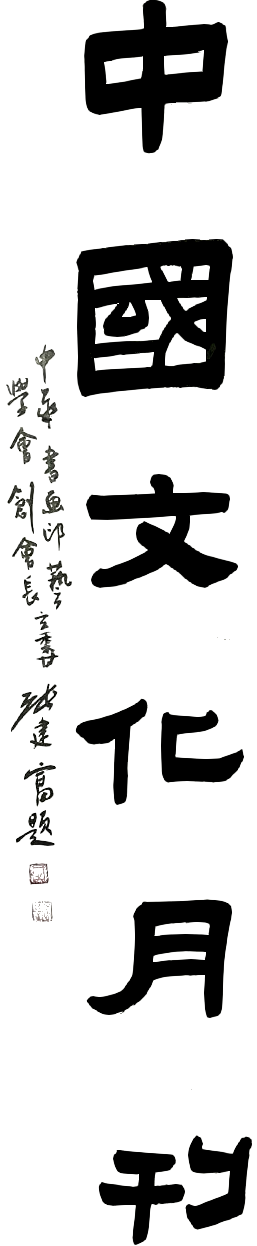 中國文化月刊
中華書画印藝
學會創會長立委張建富題